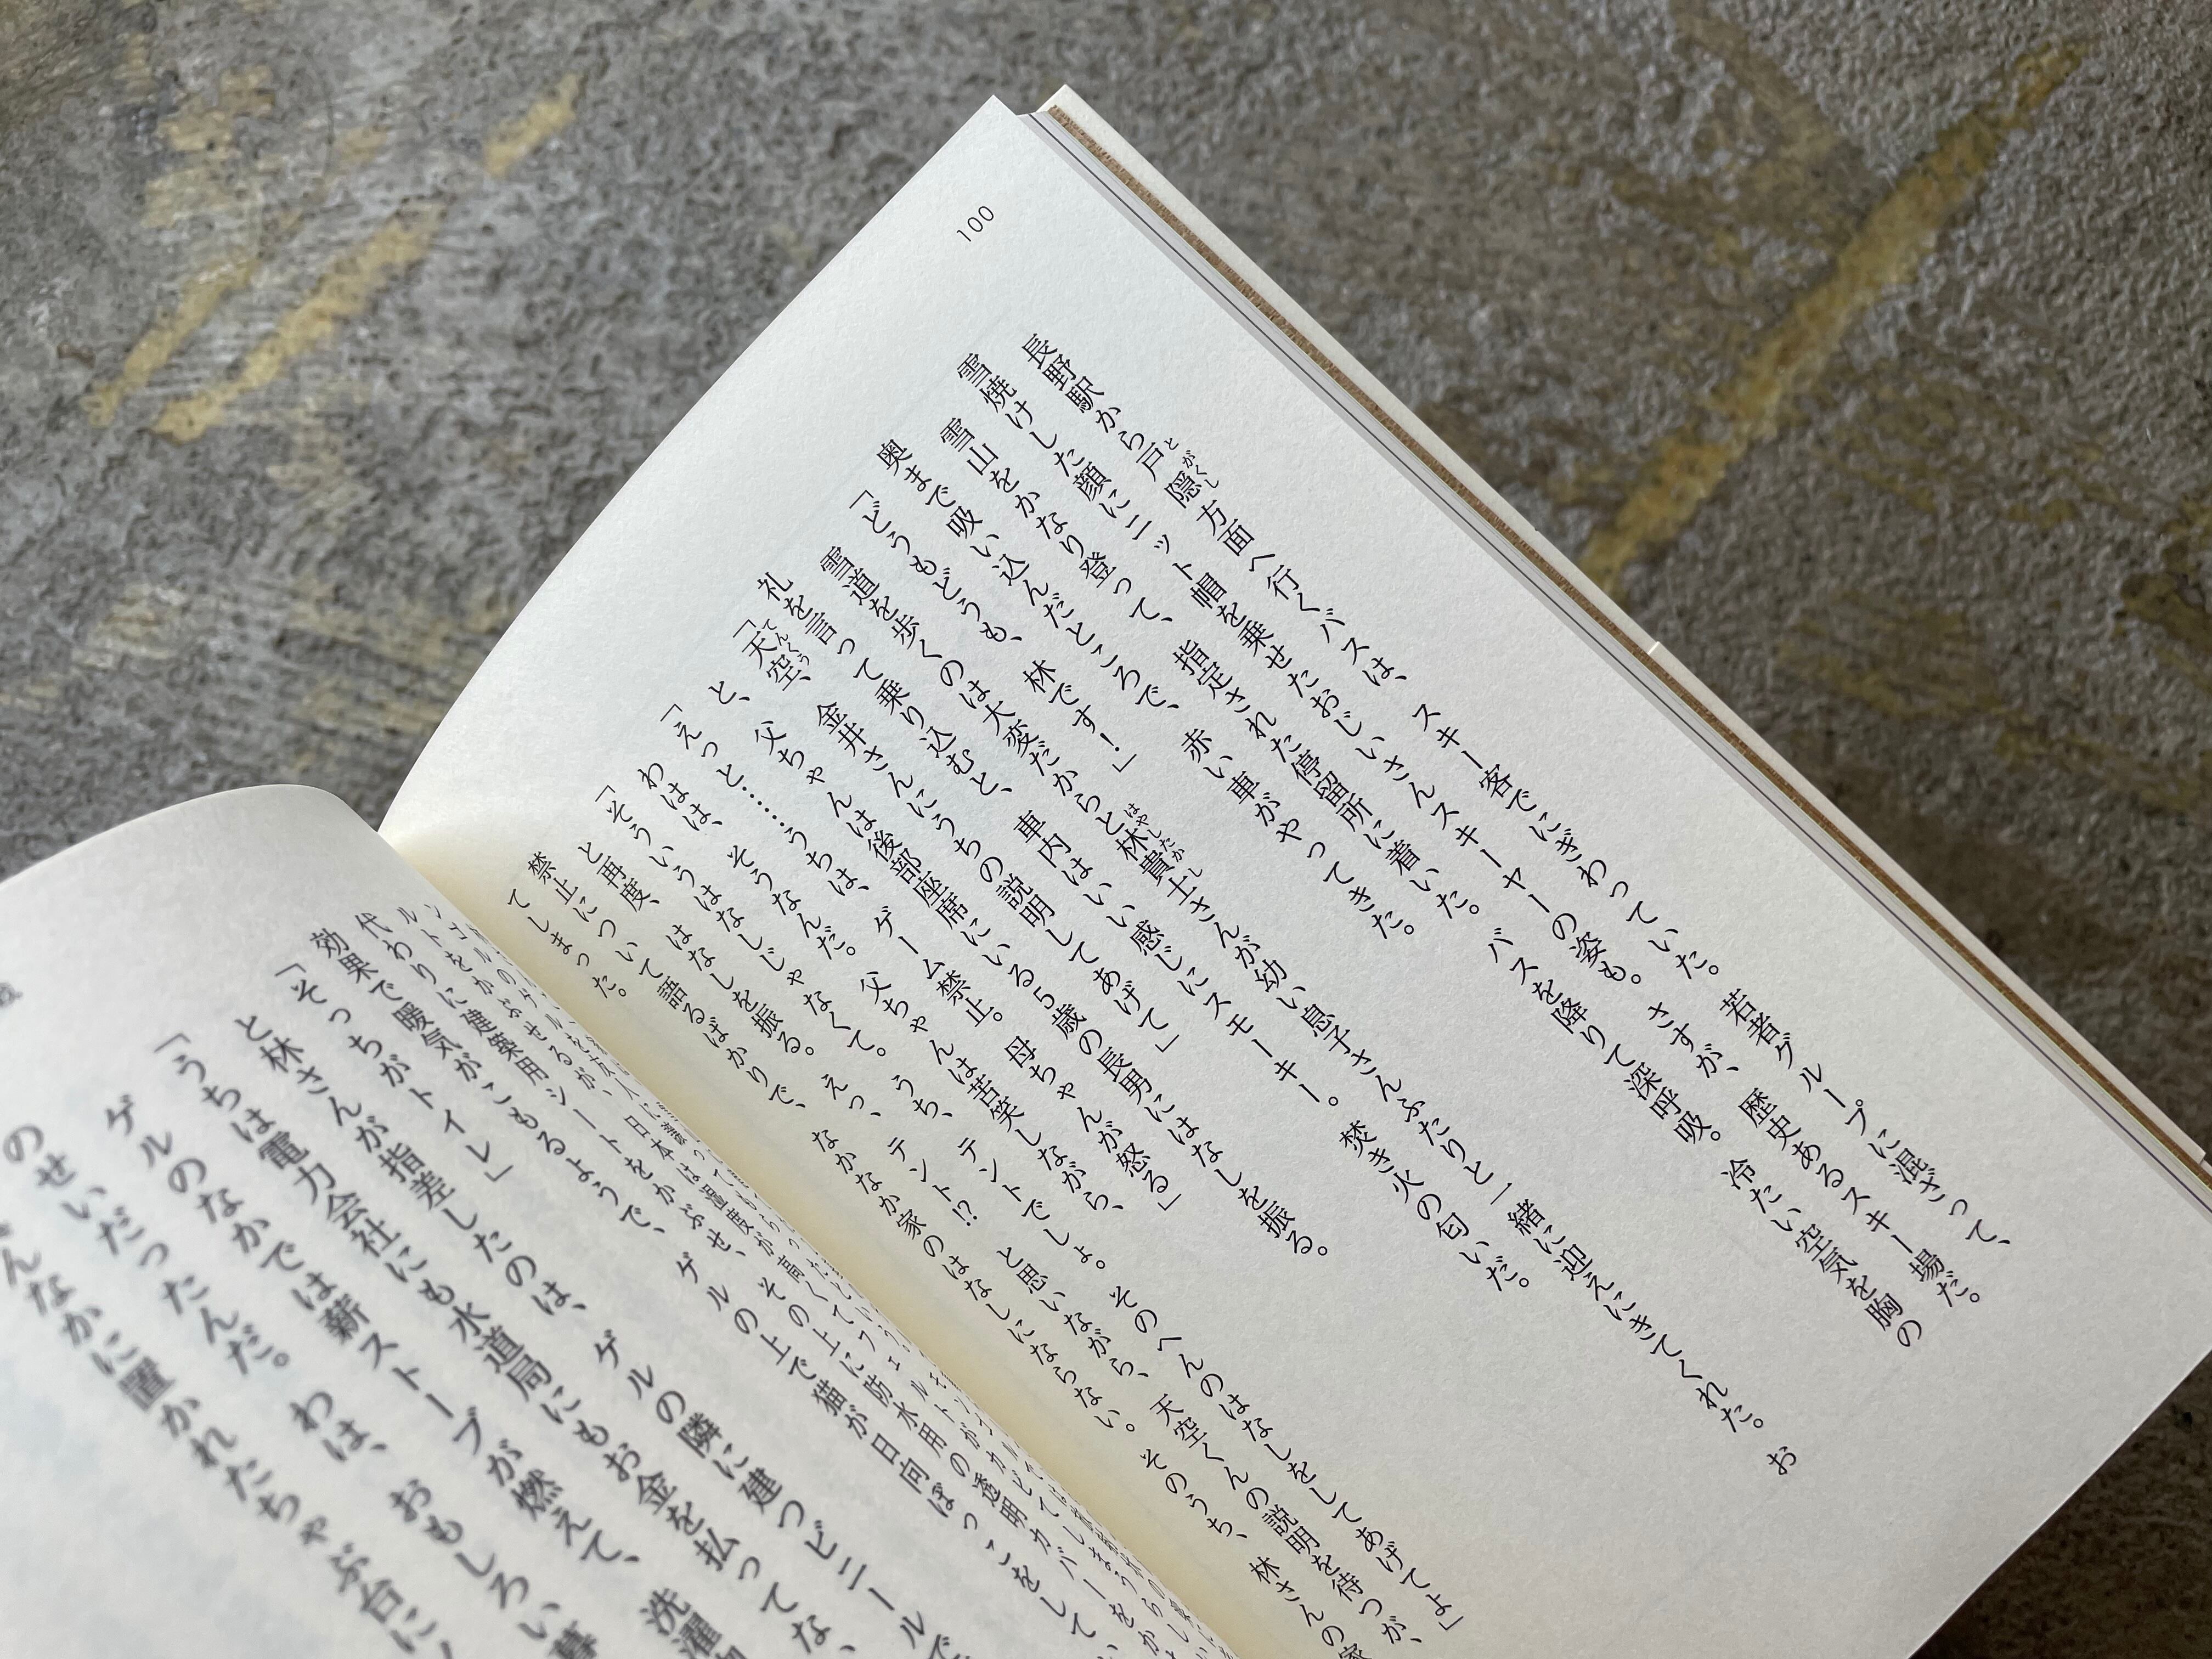 100
長野駅から戸隠方面へ行くバスは、スキー客でにぎわっていた。若者グループに混ざって、
雪焼けした顔にニット帽を乗せたおじいさんスキーヤーの姿も。さすが、歴史あるスキー場だ。
雪山をかなり登って、指定された停留所に着いた。バスを降りて深呼吸。冷たい空気を胸の
奥まで吸い込んだところで、赤い車がやってきた。
「どうもどうも、林です！」
雪道を歩くのは大変だからと林貴士さんが幼い息子さんふたりと一緒に迎えにきてくれた。お
礼を言って乗り込むと、車内はいい感じにスモーキー。焚き火の匂いだ。
「天空、金井さんにうちの説明してあげて」
と、父ちゃんは後部座席にいる5歳の長男にはなしを振る。
「えっと……うちは、ゲーム禁止。母ちゃんが怒る」
わはは、そうなんだ。父ちゃんは苦笑しながら、
「そういうはなしじゃなくて。うち、テントでしょ。そのへんのはなしをしてあげてよ」
と再度、はなしを振る。えっ、テント!? と思いながら、天空くんの説明を待つが、
禁止について語るばかりで、なかなか家のはなしにならない。そのうち、林さんの家
てしまった。
代わりに建築用シートをかぶせ、その上に防水用の透明カバーをか
効果で暖気がこもるようで、ゲルの上で猫が日向ぼっこをして
「そっちがトイレ」
と林さんが指差したのは、ゲルの隣に建つビニールで
「うちは電力会社にも水道局にもお金を払ってな、
ゲルのなかでは薪ストーブが燃えて、洗濯
のせいだったんだ。わは、おもしろい暮
んなかに置かれたちゃぶ台に